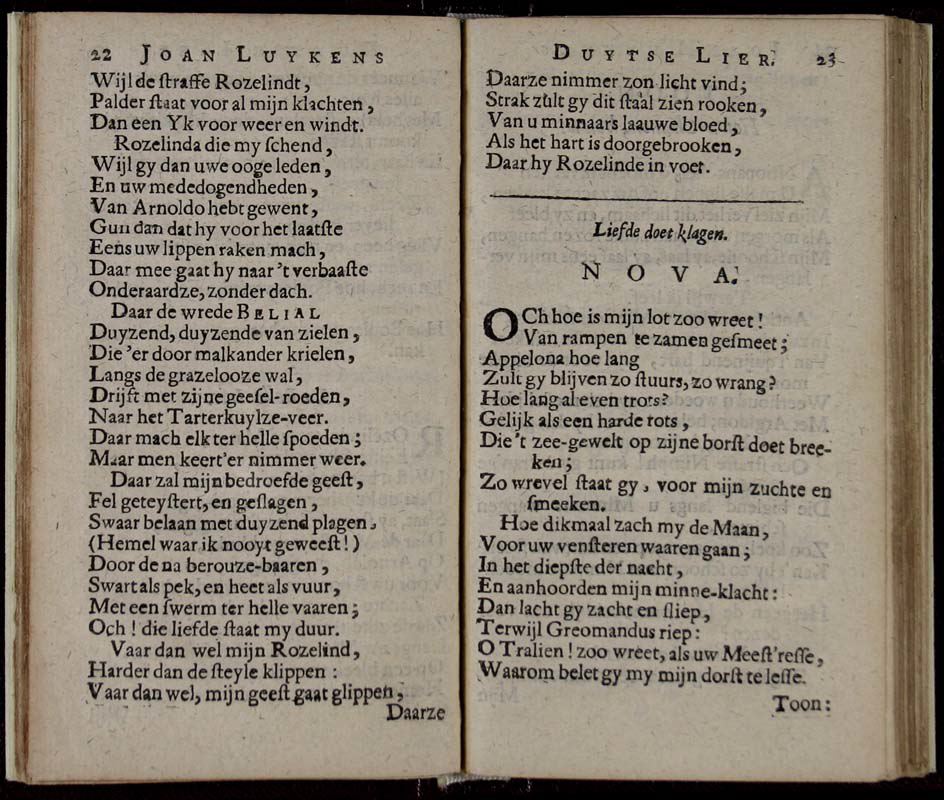 22 JOAN LUYKENS
Wijl de straffe Rozelindt,
Palder staat voor al mijn klachten,
Dan een Yk voor weer en windt.
Rozelinda die my schend,
Wijl gy dan uwe ooge leden,
En uw mededogendheden,
Van Arnoldo hebt gewent,
Gun dan dat hy voor het laatste
Eens uw lippen raken mach,
Daar mee gaat hy naar 't verbaaste
Onderaardze, zonder dach.
Daar de wrede BELIAL
Duyzend, duyzende van zielen,
Die 'er door malkander krielen,
Langs de grazelooze wal,
Drijft met zijne geesel-roeden,
Naar het Tarterkuylze-veer.
Daar mach elk ter helle spoeden;
Maar men keert'er nimmer weer.
Daar zal mijn bedroefde geest,
Fel geteystert, en geslagen,
Swaar belaan met duyzend plagen,
(Hemel waar ik nooyt geweest!)
Door de na berouze-baaren,
Swart als pek, en heet als vuur,
Met een swerm ter helle vaaren;
Och! die liefde staat my duur.
Vaar dan wel mijn Rozelind,
Harder dan de steyle klippen:
Vaar dan wel, mijn geest gaat glippen,
Daarze
DUYTSE LIER. 23
Daarze nimmer zon licht vind;
Strak zult gy dit staal zien rooken,
Van u minnaars laauwe bloed,
Als het hart is doorgebrooken,
Daar hy Rozelinde in voet.
Liefde doet klagen.
NOVA.
OCh hoe is mijn lot zoo wreet!
Van rampen te zamen gesmeet;
Appelona hoe lang
Zult gy blijven zo stuurs, zo wrang?
Hoe lang al even trots?
Gelijk als een harde rots,
Die 't zee-gewelt op zijne borst doet bree-
ken;
Zo wrevel staat gy, voor mijn zuchte en
smeeken.
Hoe dikmaal zach my de Maan,
Voor uw vensteren waaren gaan;
In het diepste der nacht,
En aanhoorden mijn minne-klacht:
Dan lacht gy zacht en sliep,
Terwijl Greomandus riep:
O Tralien! zoo wreet, als uw Meest'resse,
Waarom belet gy my mijn dorst te lesse.
Toon: